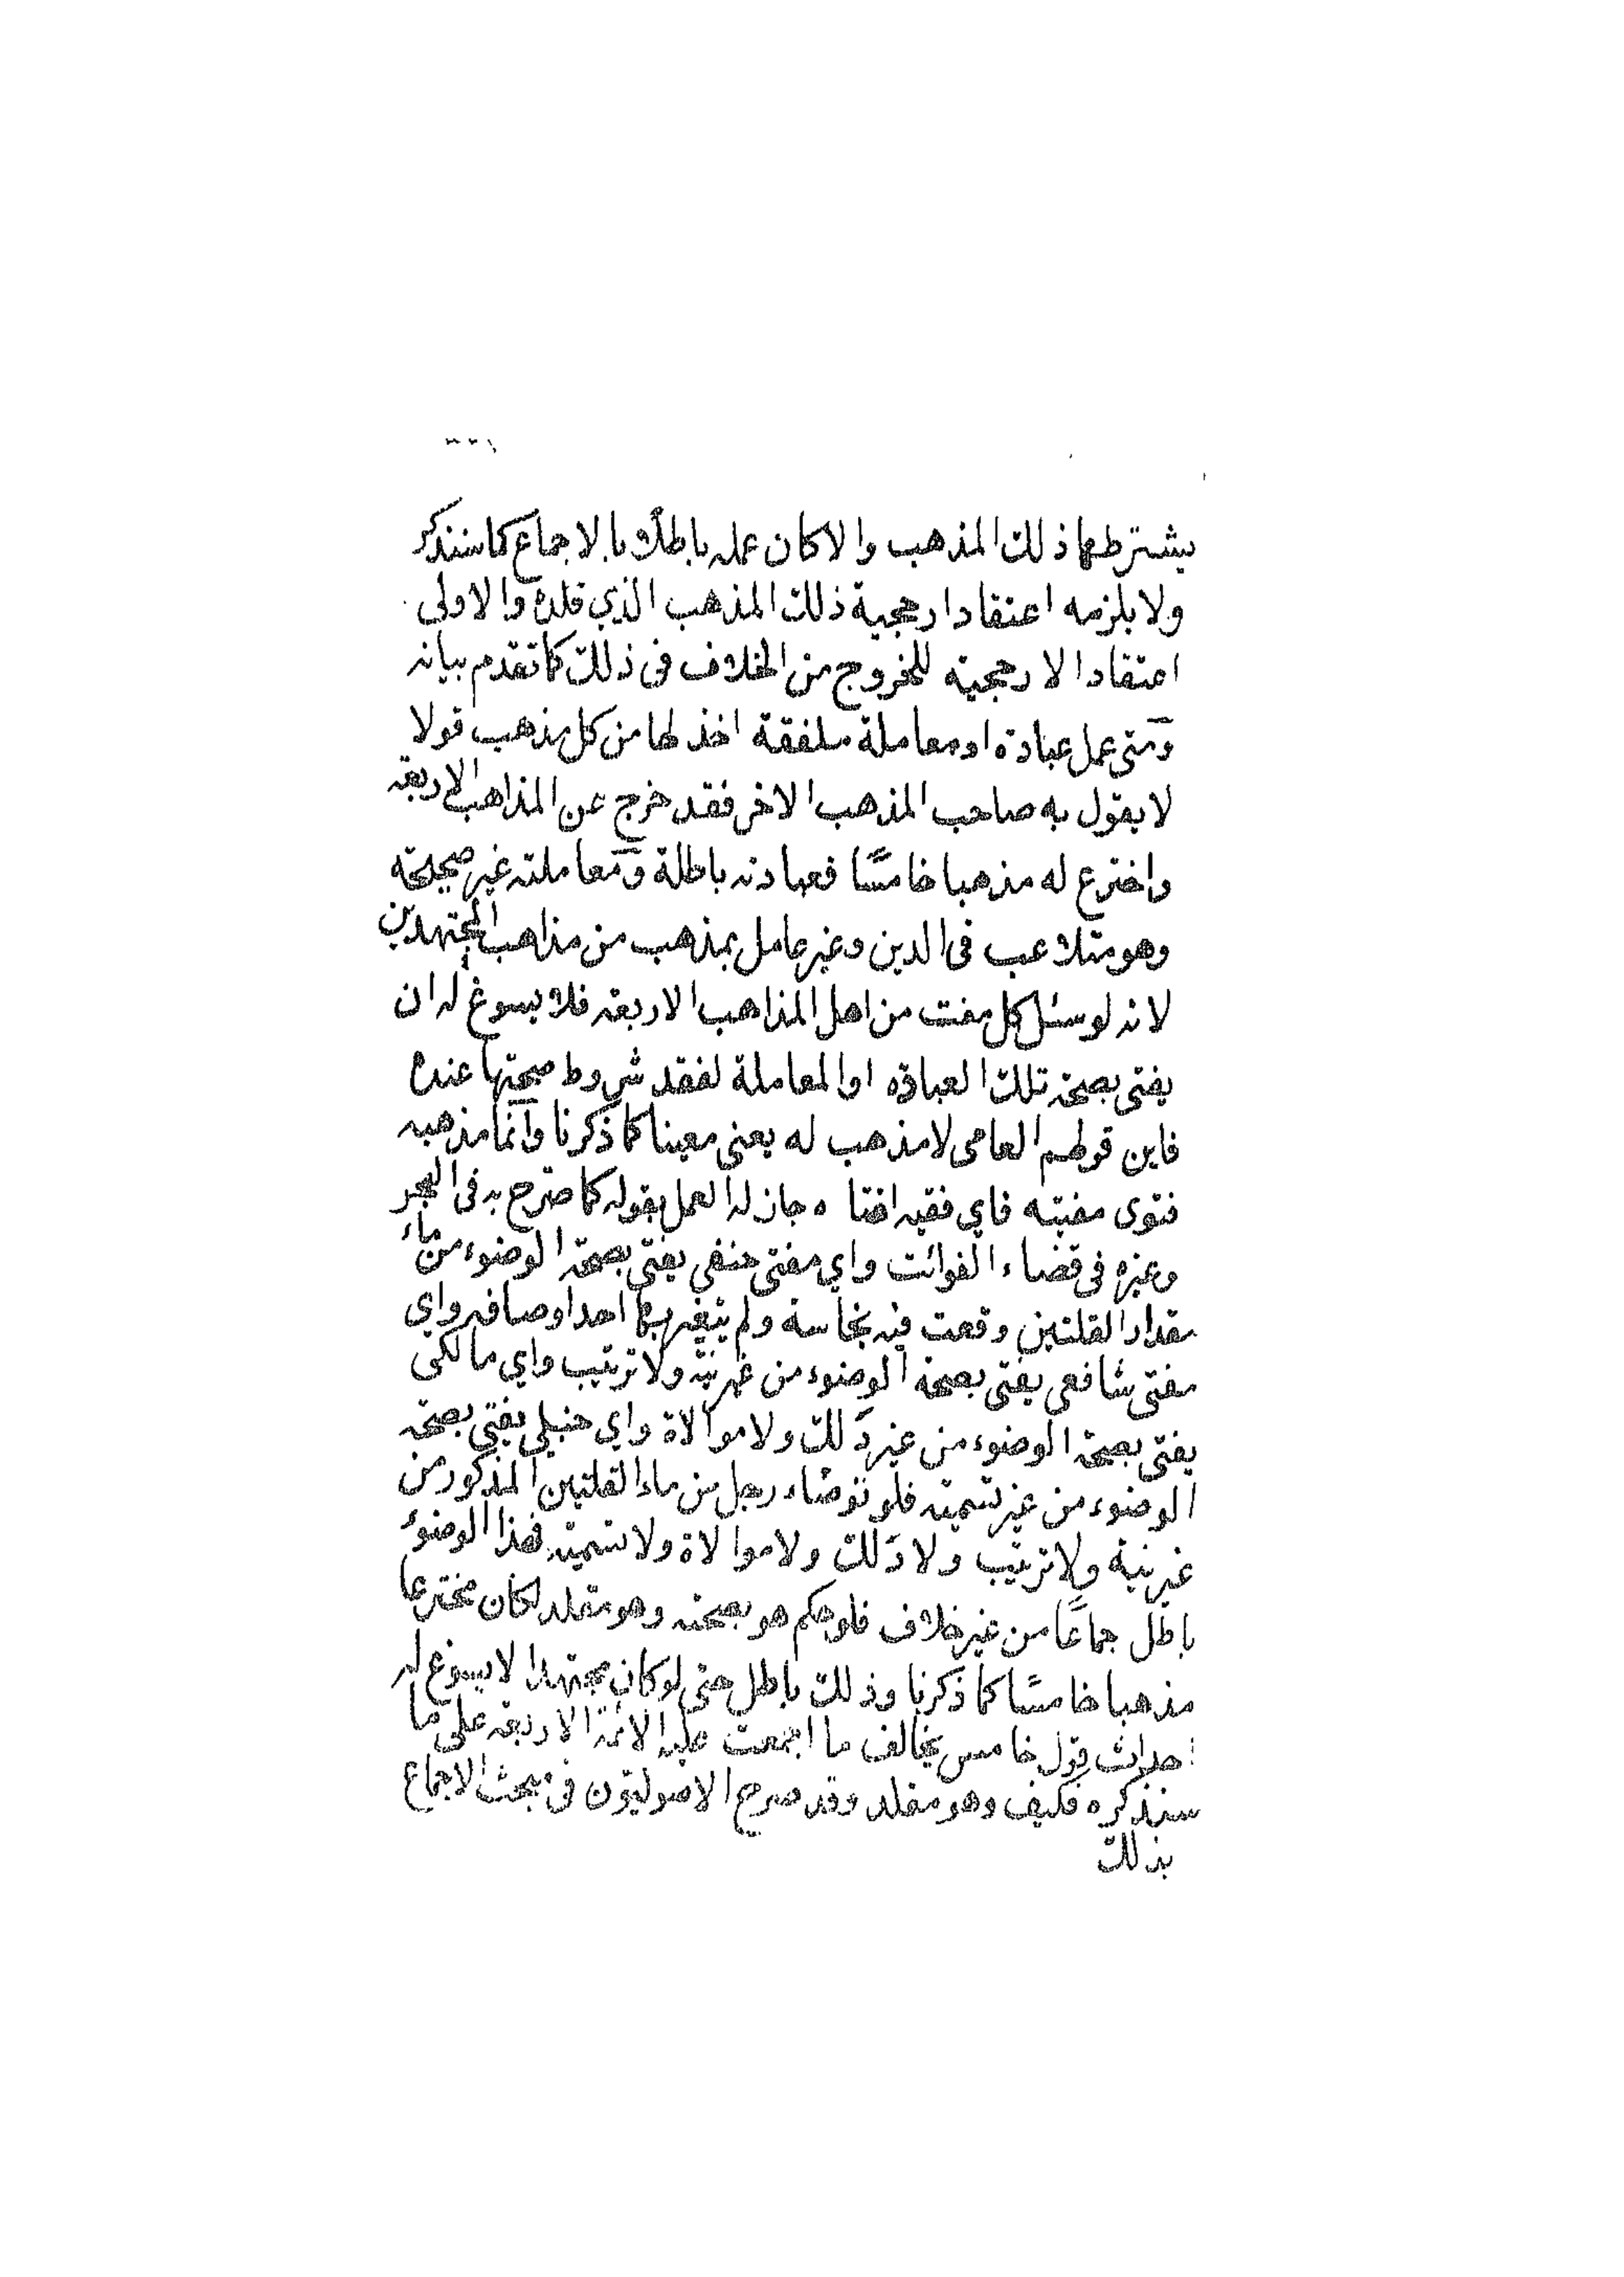 يشترطها ذلك المذهب والا كان عمله باطلًا بالاجماع كما سنذكر
ولا يلزمه اعتقاد ارجحية ذلك المذهب الذي قلده والاولى
اعتقاد الارجحية للخروج من الخلاف فى ذلك كما تقدم بيانه
ومتى عمل عبادة او معاملة ملفقة اخذ لها من كل مذهب قولا
لا يقول به صاحب المذهب الاخر فقد خرج عن المذاهب الاربعة
واخترع له مذهبا خامسًا فعبادته باطلة ومعاملته غير صحيحة
وهو متلاعب فى الدين وغير عامل بمذهب من مذاهب المجتهدين
لانه لو سئل كل مفت من اهل المذاهب الاربعة فلا يسوغ له ان
يفتى بصحة تلك العبادة او المعاملة لفقد شروط صحتها عنده
فاين قولهم العامى لا مذهب له يعنى معينا كما ذكرنا وانما مذهبه
فتوى مفتيه فاي فقيه افتاه جاز له العمل بقوله كما صرح به فى البحر
وغيره فى قضاء الفوائت واي مفتى حنفي يفتى بصحة الوضوء من ماء
مقدار القلتين وقعت فيه نجاسة ولم يتغير بها احد اوصافه واي
مفتى شافعى يفتى بصحة الوضوء من غير نية ولا ترتيب واي مالكى
يفتى بصحة الوضوء من غير دَلك ولا موالاة واي حنبلي يفتي بصحة
الوضوء من غير تسمية فلو توضاء رجل من ماء القلتين المذكور من
غير نية ولا ترتيب ولا دَلك ولا موالاة ولا تسمية فهذا الوضوء
باطل جماعًا من غير خلاف فلو حكم هو بصحته وهو مقلد لكان مخترعا
مذهبا خامسًا كما ذكرنا وذلك باطل حتى لو كان مجتهدا لا يسوغ له
احداث قول خامس يخالف ما اجمعت عليه الائمة الاربعة على ما
سنذكره فكيف وهو مقلد وقد صرح الاصوليون فى مبحث الاجماع
بذلك